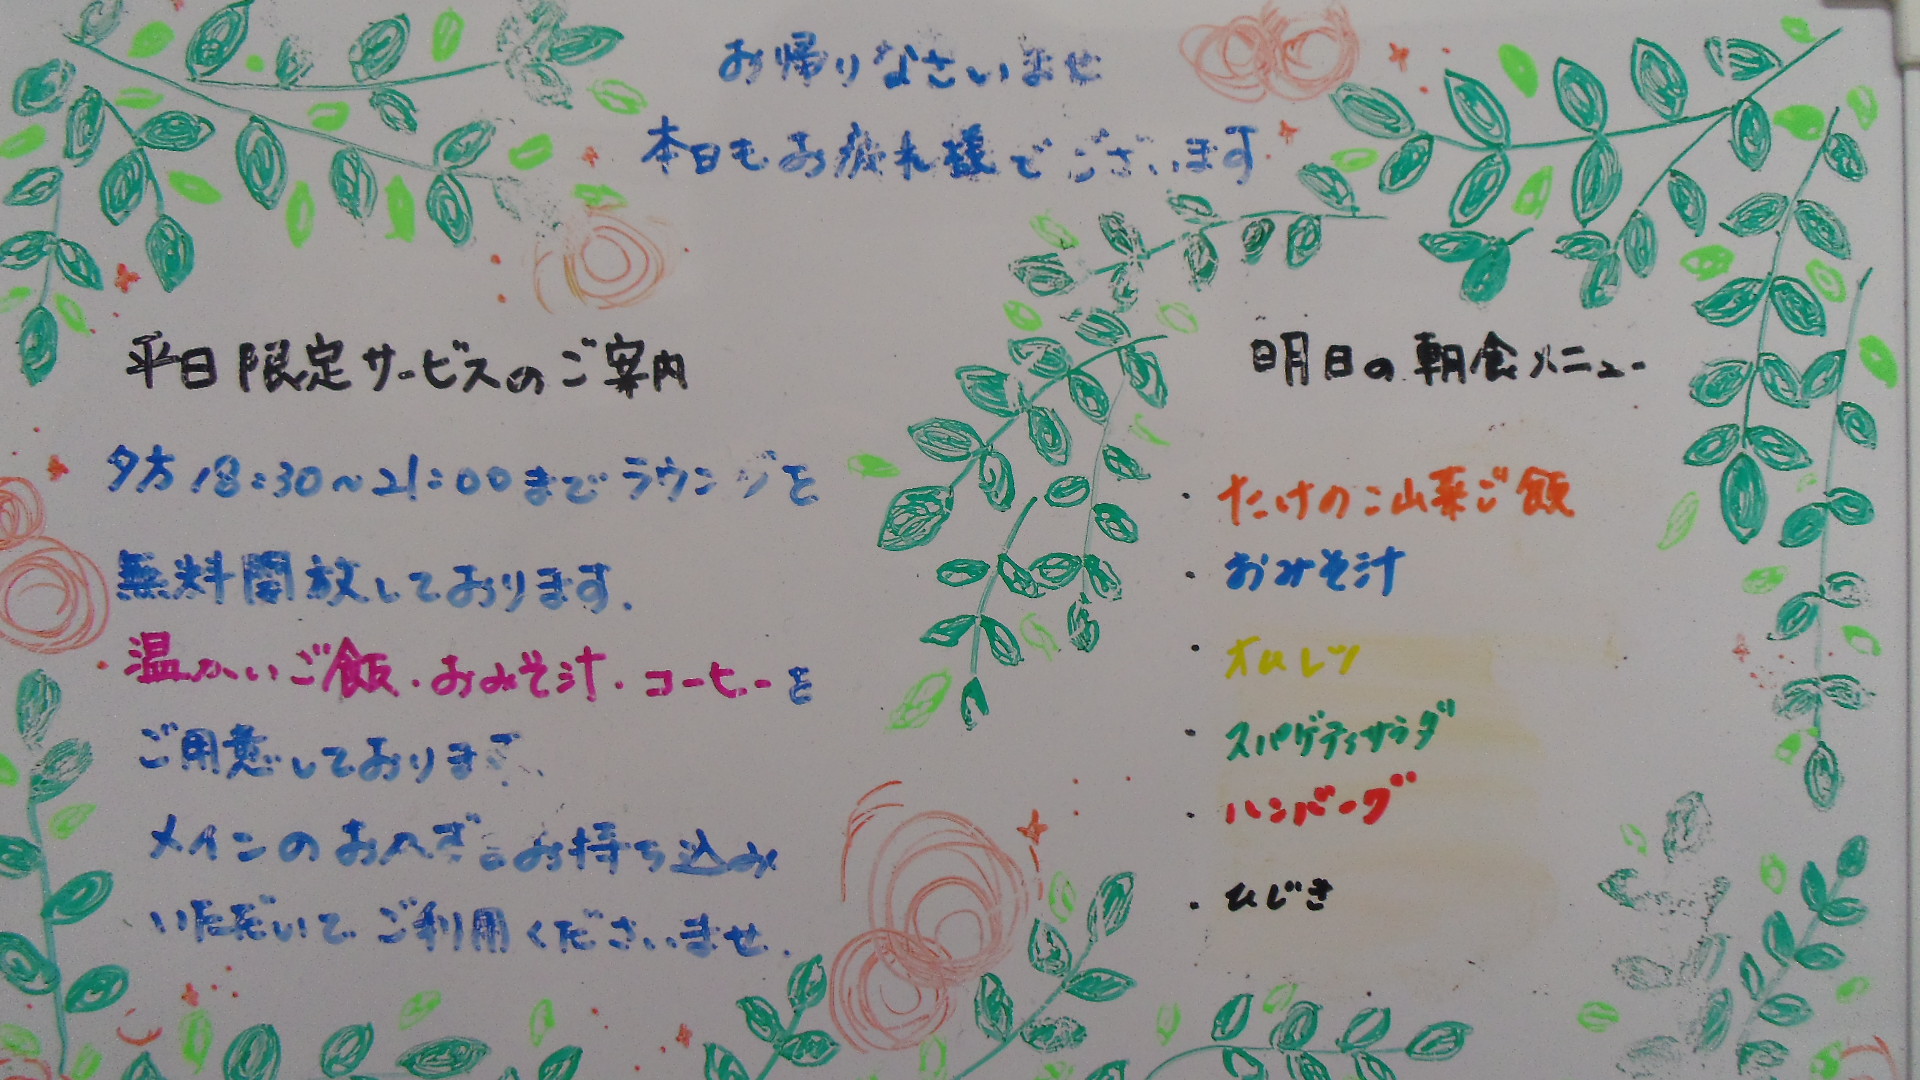 お帰りなさいませ
本日もお疲れ様でございます
平日限定サービスのご案内
夕方18:30～21:00までラウンジを
無料開放しております.
温かいご飯・おみそ汁・コーヒーを
ご用意しております.
メインのおかずをお持ち込み
いただいてご利用くださいませ.
明日の朝食メニュー
・たけのこ山菜ご飯
・おみそ汁
・オムレツ
・スパゲティサラダ
・ハンバーグ
・ひじき